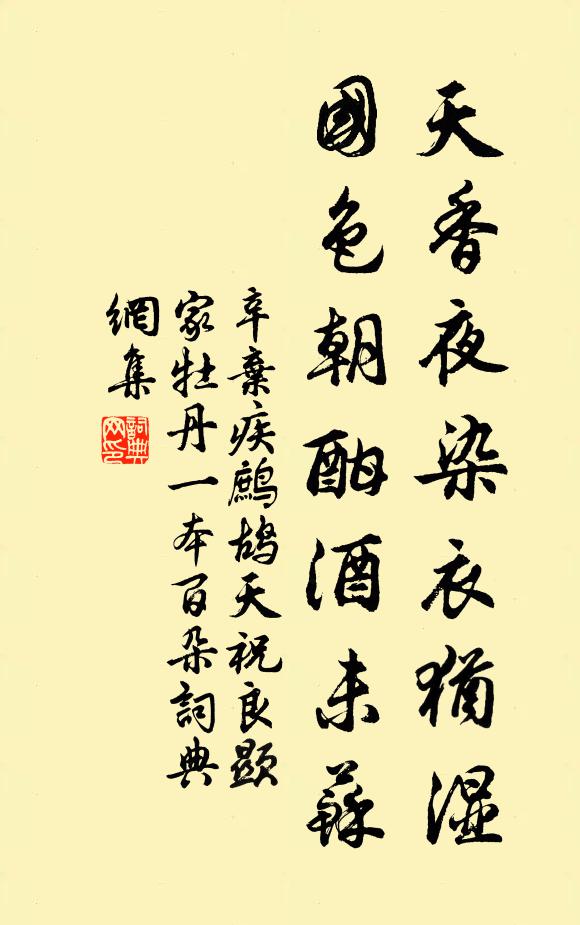 天香夜染衣猶濕
國色朝酣酒未蘇
辛棄疾鷓鴣天祝良顯
家牡丹一本百朵詞典
網集
詞典
网印